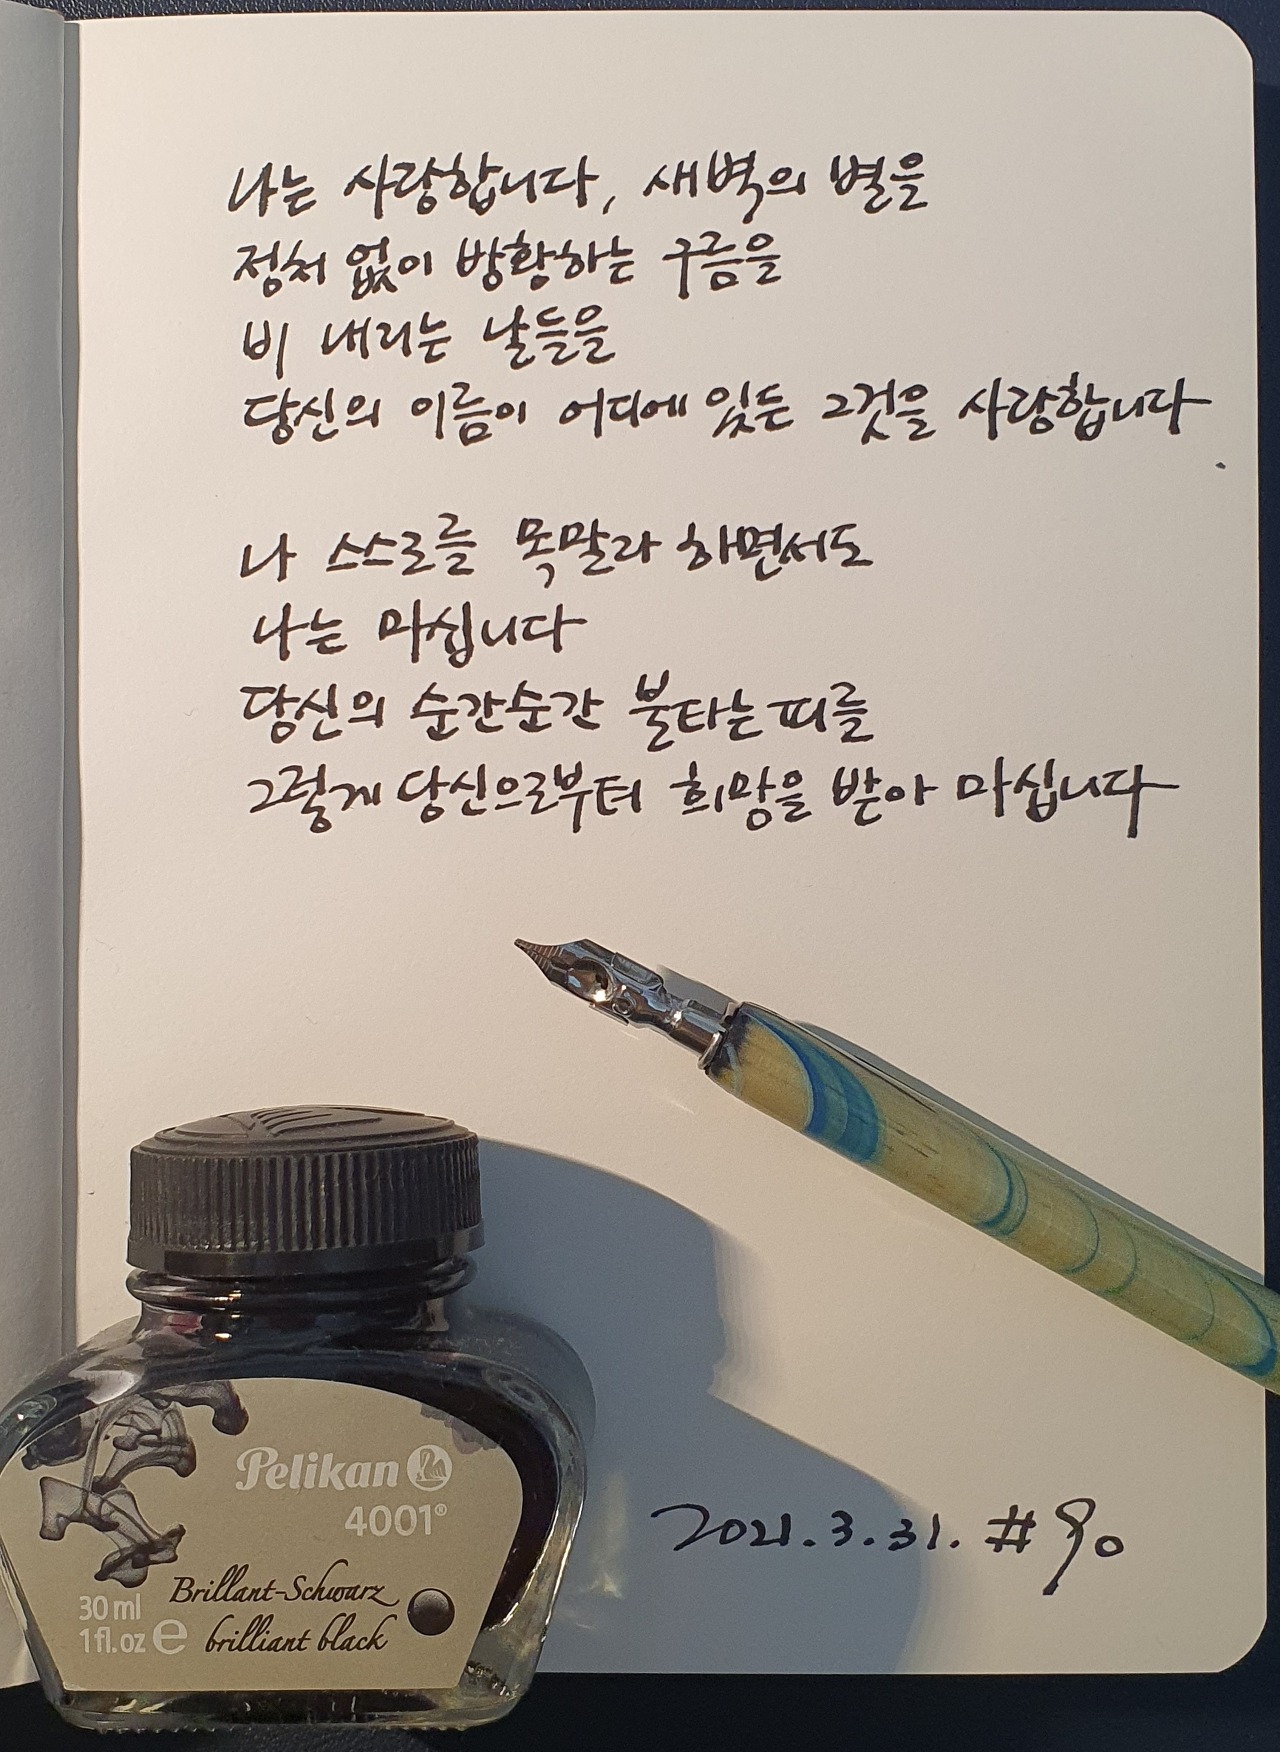 나는 사랑합니다, 새벽의 별을
정처 없이 방황하는 구름을
비 내리는 날들을
당신의 이름이 어디에 있든 그것을 사랑합니다.
나 스스로를 목말라 하면서도
나는 마십니다
당신의 순간순간 불타는 피를
그렇게 당신으로부터 희망을 받아 마십니다
Pelikan
4001®
Brillant-Schwarz
30 ml
1 fl.oz e brilliant black
2021.3.31. #90